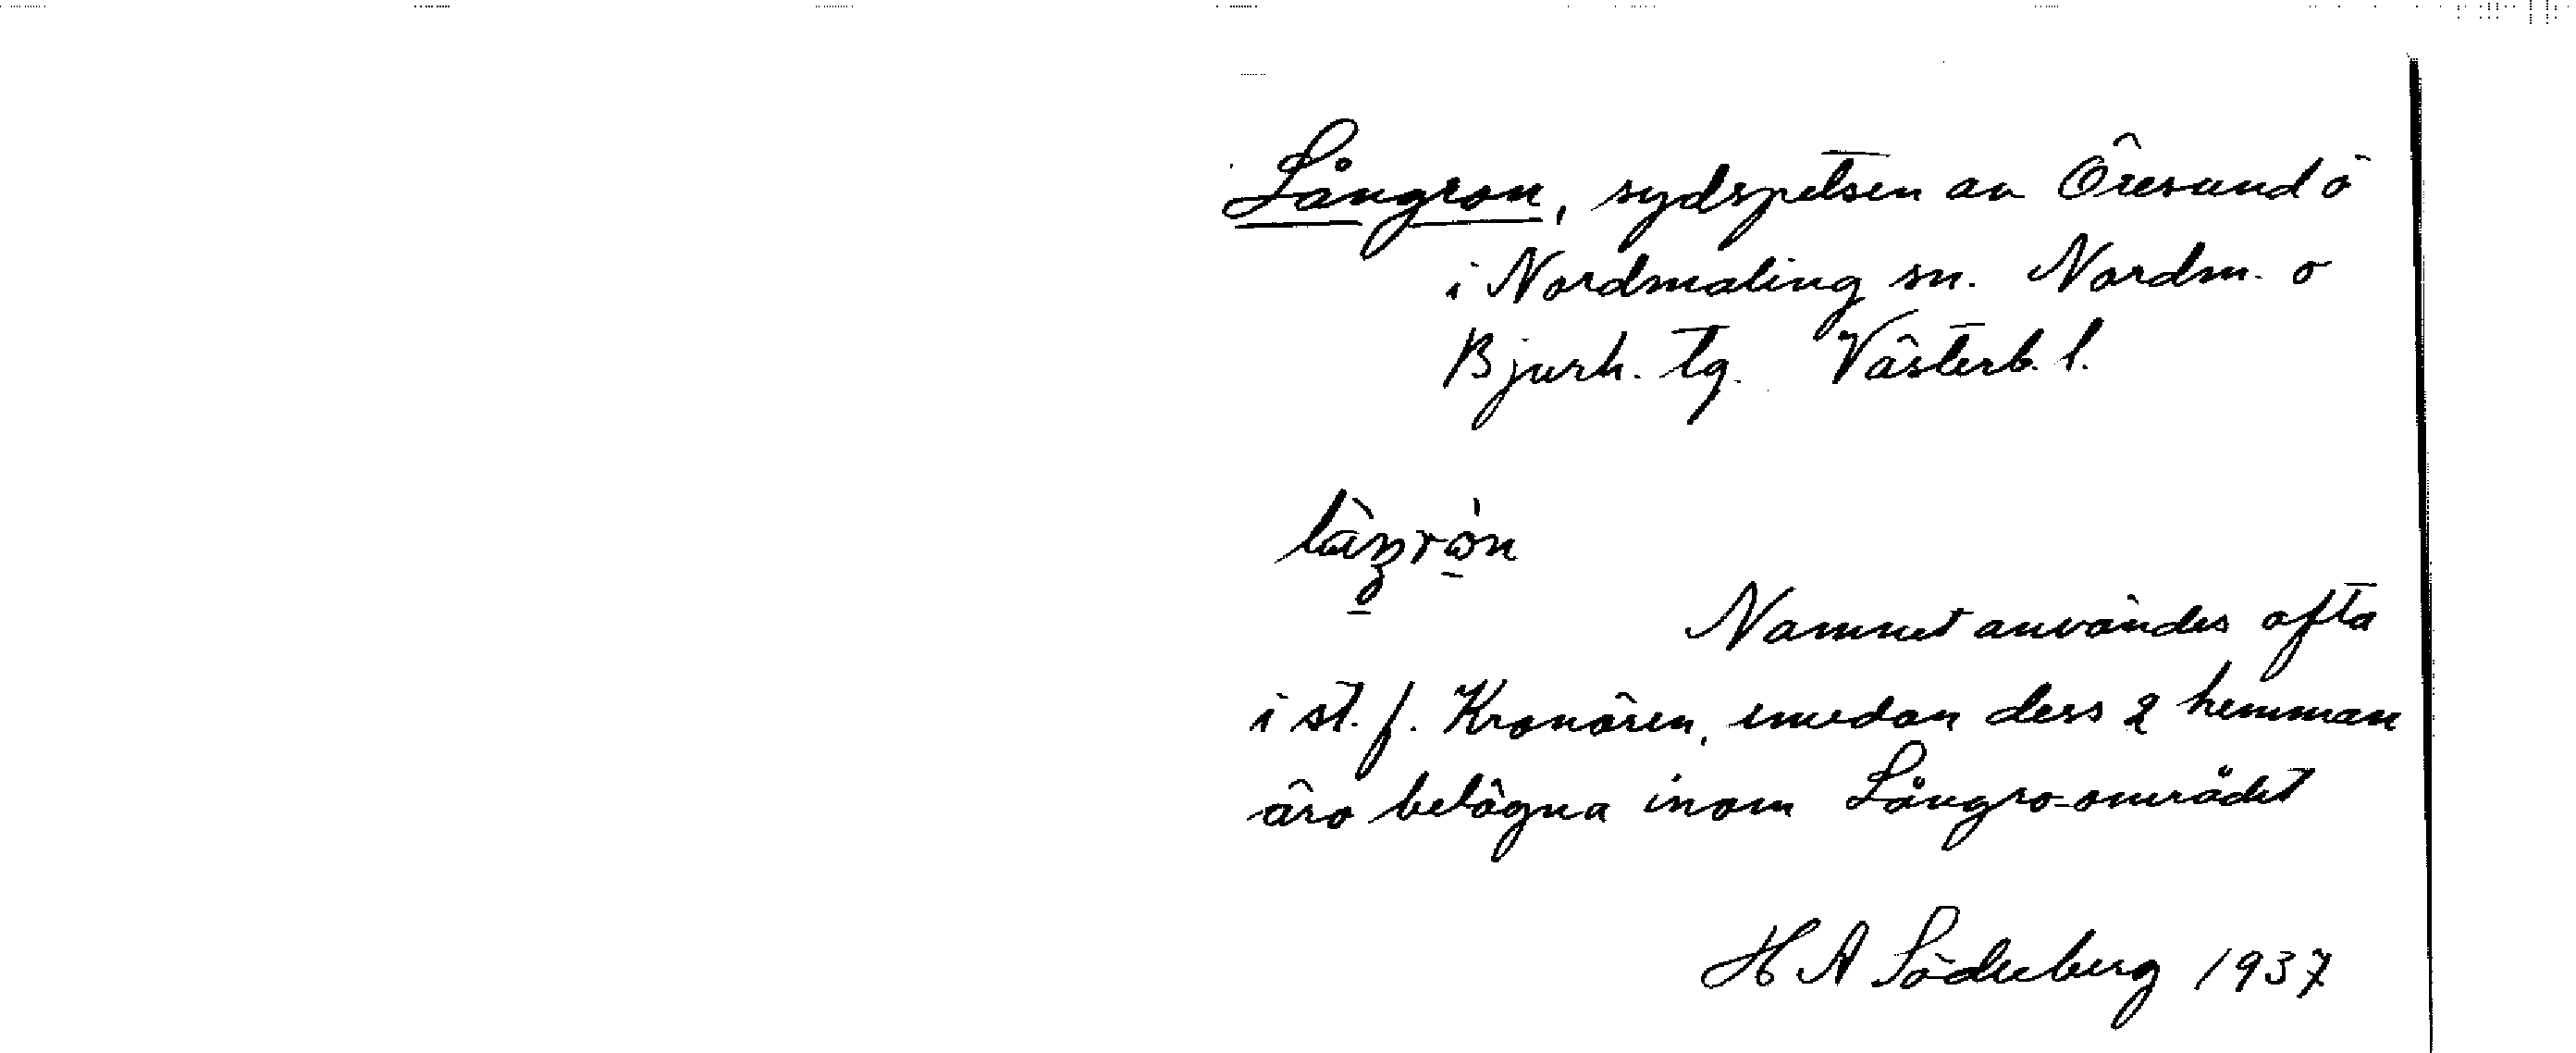 Långron, sydspetsen av Öresund ö
i Nordmaling sn. Nordm. o
Bjurh. tg. Västerb. l.
Namnet användes ofta
i st. f. Kronören, emedan dess 2 hemman
äro belägna inom Långro-området
H A Söderberg 1937